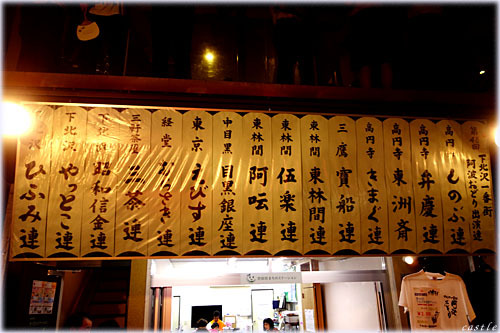 下北沢一番街
阿波おどり出演連
高円寺 しのぶ連
高円寺 弁慶連
高円寺 東洲斎
高円寺 きまぐ連
三鷹 寳船連
東林間 東林間連
東林間 伍楽連
東林間 阿吽連
中目黒 目黒銀座連
東京 えびす連
経堂
三軒茶屋 三茶連
下北沢 昭和信金連
下北沢 やっとこ連
ひふみ連
castle